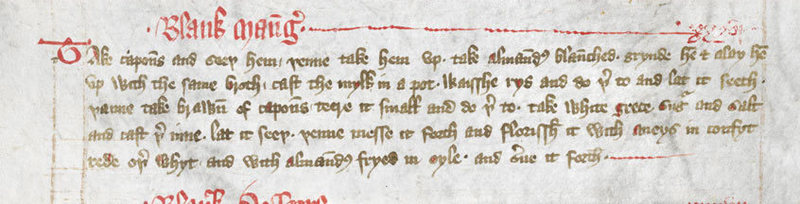 Blank Maunger.
Take capouns and seeþ hem. þenne take hem up. take almandes blaunched. grynde hem & alay hem
up with the same broth. cast the mylk in a pot. waisshe rys and do þerto and lat it seeth.
þanne take brawn of capouns teere it small and do þerto. take white grece sugur and salt
and cast þerinne. lat it seeþ. þenne messe it forth and florissh it with aneys in confyt
rede oþer whyt. and with almandes fryed in oyle. and serve it forth.
Blank